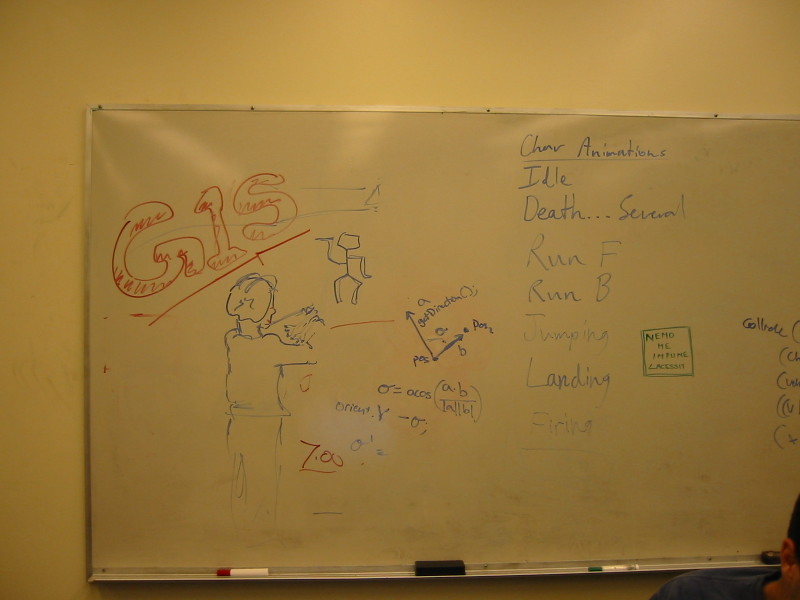 Char Animations
Idle
Death... Several
Run F
Run B
Jumping
Landing
Firing
GIS
a
getDirection();
σ
Pos2
pos
b
σ = acos(a·b / |a||b|)
orient.Y - σ;
σ' =
Zoo
NEMO
ME
IMPUNE
LACESSIT
Collide (